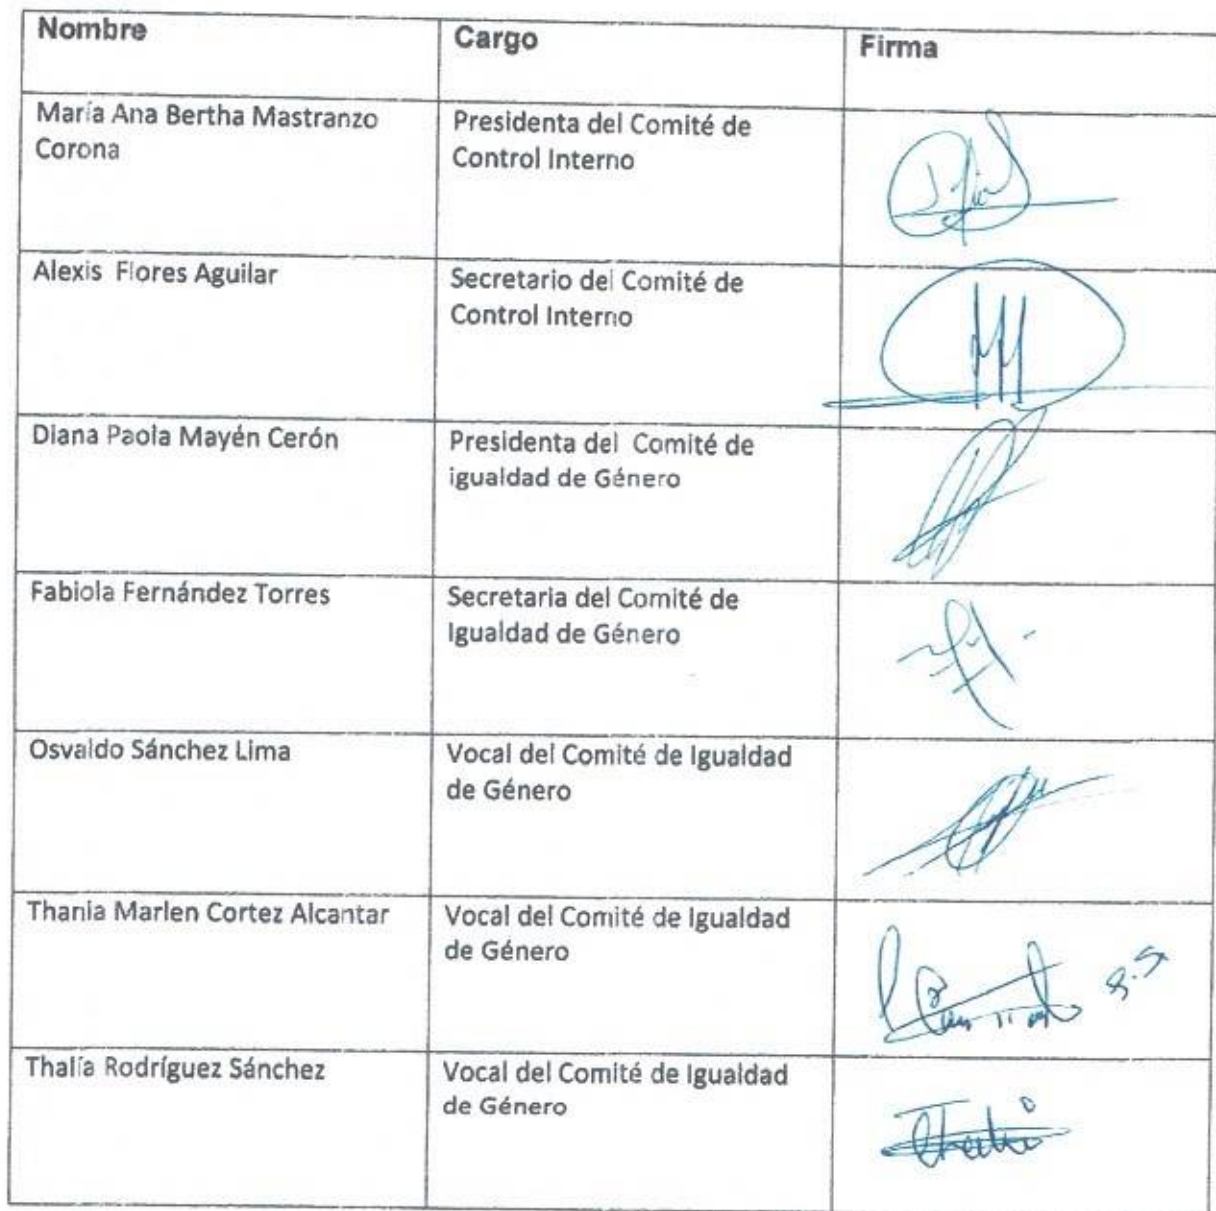 Nombre Cargo Firma
María Ana Bertha Mastranzo Presidenta del Comité de
Corona Control Interno
Alexis Flores Aguilar Secretario del Comité de
Control Interno
Diana Paola Mayén Cerón Presidenta del Comité de
igualdad de Género
Fabiola Fernández Torres Secretaria del Comité de
Igualdad de Género
Osvaldo Sánchez Lima Vocal del Comité de Igualdad
de Género
Thania Marlen Cortez Alcantar Vocal del Comité de Igualdad
de Género
Thalía Rodríguez Sánchez Vocal del Comité de Igualdad
de Género